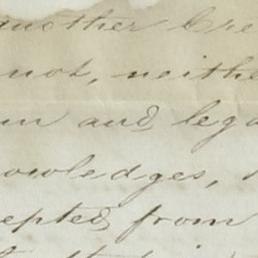 another Cre
not, neithe
um and lega
nowledges,
epted from